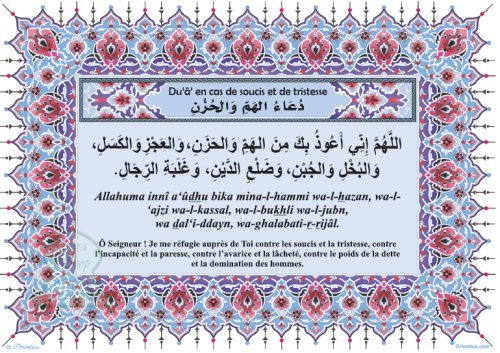 Du‘â’ en cas de soucis et de tristesse
دُعَاءُ الهَمِّ وَالحُزْنِ
اللَّهُمَّ إِنِّي أَعُوذُ بِكَ مِنَ الهَمِّ وَالحَزَنِ، وَالعَجْزِ وَالكَسَلِ،
وَالبُخْلِ وَالجُبْنِ، وَضَلْعِ الدَّيْنِ، وَغَلَبَةِ الرِّجَالِ.
Allahuma innî a‘ûdhu bika mina-l-hammi wa-l-hazan, wa-l-
‘ajzi wa-l-kassal, wa-l-bukhli wa-l-jubn,
wa dal‘i-ddayn, wa-ghalabati-r-rijâl.
Ô Seigneur ! Je me réfugie auprès de Toi contre les soucis et la tristesse, contre
l’incapacité et la paresse, contre l’avarice et la lâcheté, contre le poids de la dette
et la domination des hommes.
© Orientica
Orientica.com